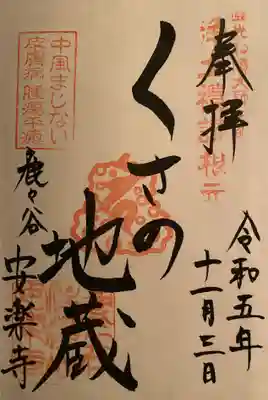 奉拝
令和五年
十一月三日
くさの
地蔵
中風まじない
皮膚病腫瘍平癒
鹿ヶ谷
安楽寺